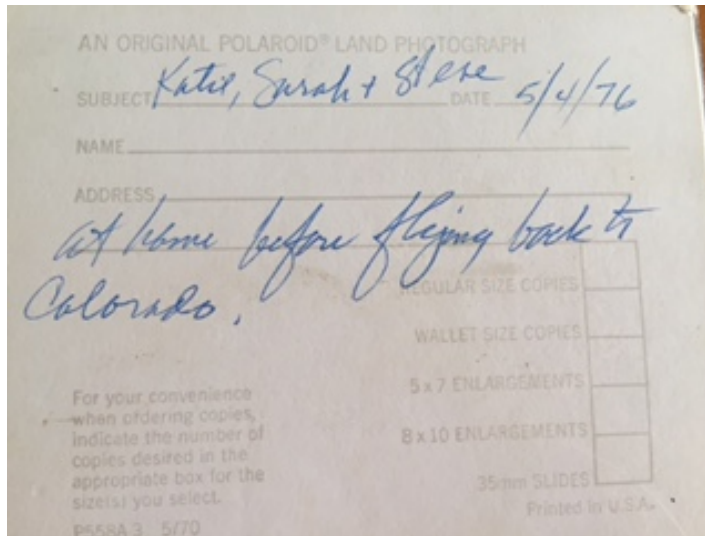 AN ORIGINAL POLAROID® LAND PHOTOGRAPH
SUBJECT Katie, Sarah + Steve DATE 5/4/76
NAME
ADDRESS
at home before flying back to
Colorado.
REGULAR SIZE COPIES
WALLET SIZE COPIES
5 x 7 ENLARGEMENTS
8 x 10 ENLARGEMENTS
35mm SLIDES
For your convenience
when ordering copies,
indicate the number of
copies desired in the
appropriate box for the
size(s) you select.
Printed in U.S.A.
P558A-3 5/70